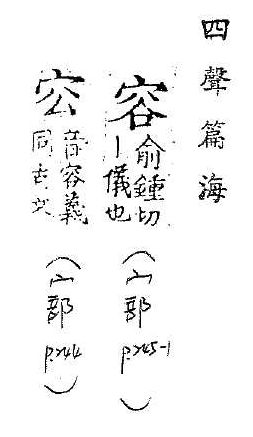 四聲篇海
容俞鍾切
｜儀也
（宀部
p.245-1）
㝐音容義
同古文
（宀部
p.244）